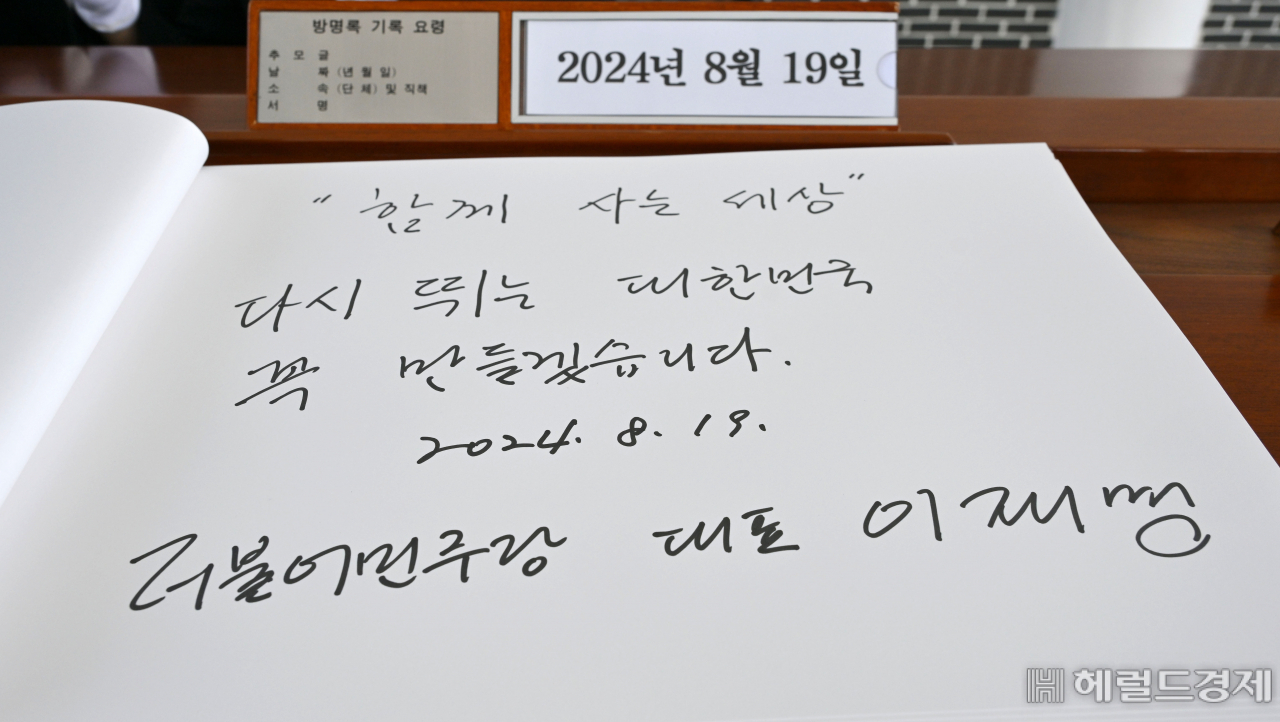 방명록 기록 요령
추 모 글
날 짜 (년 월 일)
소 속 (단 체) 및 직책
서 명
2024년 8월 19일
"함께 사는 세상"
다시 뛰는 대한민국
꼭 만들겠습니다.
2024. 8. 19.
더불어민주당 대표 이재명
헤럴드경제